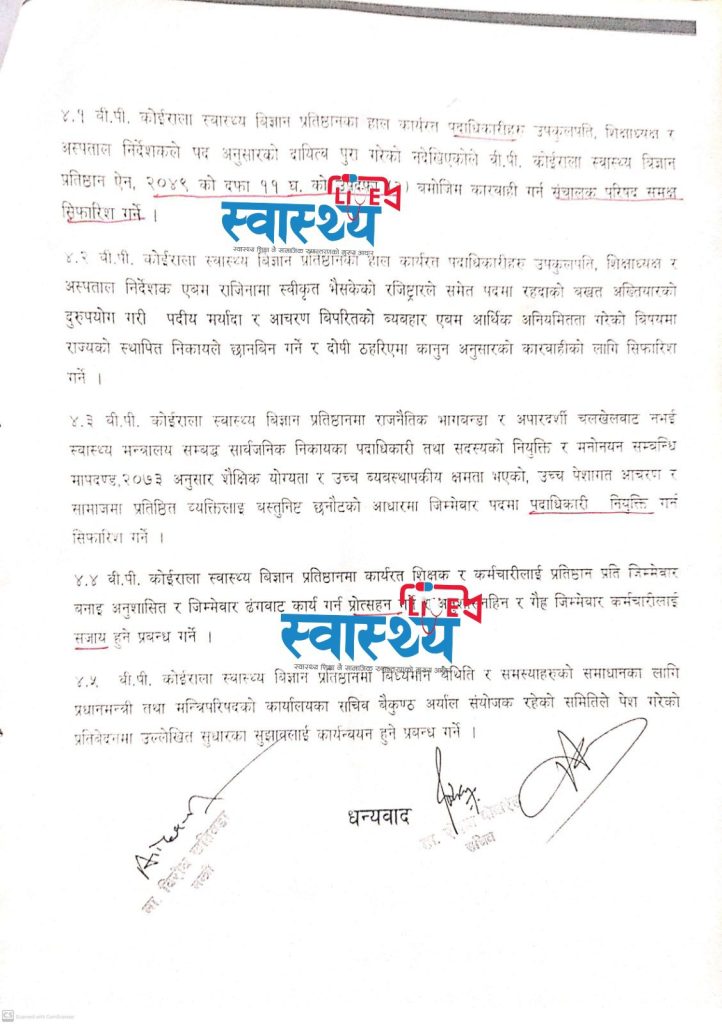 ४.१ वी.पी. कोईराला स्वास्थ्य बिज्ञान प्रतिष्ठानका हाल कार्यरत पदाधिकारीहरु उपकुलपति, शिक्षाध्यक्ष र
अस्पताल निर्देशकले पद अनुसारको दायित्व पुरा गरेको नदेखिएकोले बी.पी. कोईराला स्वास्थ्य बिज्ञान
प्रतिष्ठान ऐन, २०४९ को दफा ११ घ. को उपदफा बमोजिम कारवाही गर्न संचालक परिषद समक्ष
सिफारिश गर्ने ।
LIVE
स्वास्थ्य
स्वास्थ्य शिक्षा नै सामाजिक रूपान्तरणको मुख्य आधार
४.२ वी.पी. कोईराला स्वास्थ्य बिज्ञान प्रतिष्ठानका हाल कार्यरत पदाधिकारीहरु उपकुलपति, शिक्षाध्यक्ष र
अस्पताल निर्देशक एबम राजिनामा स्वीकृत भैसकेको रजिष्ट्रारले समेत पदमा रहदाको बखत अख्तियारको
दुरुपयोग गरी पदीय मर्यादा र आचरण बिपरितको व्यबहार एबम आर्थिक अनियमितता गरेको बिषयमा
राज्यको स्थापित निकायले छानबिन गर्ने र दोषी ठहरिएमा कानुन अनुसारको कारवाहीको लागि सिफारिश
गर्ने ।
४.३ वी.पी. कोईराला स्वास्थ्य बिज्ञान प्रतिष्ठानमा राजनैतिक भागबन्डा र अपारदर्शी चलखेलवाट नभई
स्वास्थ्य मन्त्रालय सम्बद्ध सार्वजनिक निकायका पदाधिकारी तथा सदस्यको नियुक्ति र मनोनयन सम्बन्धि
मापदण्ड,२०७३ अनुसार शैक्षिक योग्यता र उच्च व्यबस्थापकीय क्षमता भएको, उच्च पेशागत आचरण र
सामाजमा प्रतिष्ठित व्यक्तिलाइ बस्तुनिष्ट छनौटको आधारमा जिम्मेबार पदमा पदाधिकारी नियुक्ति गर्न
सिफारिश गर्ने ।
४.४ बी.पी. कोईराला स्वास्थ्य बिज्ञान प्रतिष्ठानमा कार्यरत शिक्षक र कर्मचारीलाई प्रतिष्ठान प्रति जिम्मेबार
बनाइ अनुशासित र जिम्मेबार ढंगवाट कार्य गर्न प्रोत्सहन गर्ने र र गैह्र जिम्मेबार कर्मचारीलाई
सजाय हुने प्रबन्ध गर्ने ।
LIVE
स्वास्थ्य
स्वास्थ्य शिक्षा नै सामाजिक रूपान्तरणको मुख्य आधार
४.५ वी.पी. कोईराला स्वास्थ्य बिज्ञान प्रतिष्ठानमा बिध्यमान र समस्याहरुको समाधानका लागि
प्रधानमन्त्री तथा मन्त्रिपरिषदको कार्यालयका सचिव बैकुण्ठ अर्याल संयोजक रहेको समितिले पेश गरेको
प्रतिबेदनमा उल्लेखित सुधारका सुझावलाई कार्यन्वयन हुने प्रबन्ध गर्ने ।
धन्यवाद
सचिव
CS Scanned with CamScanner